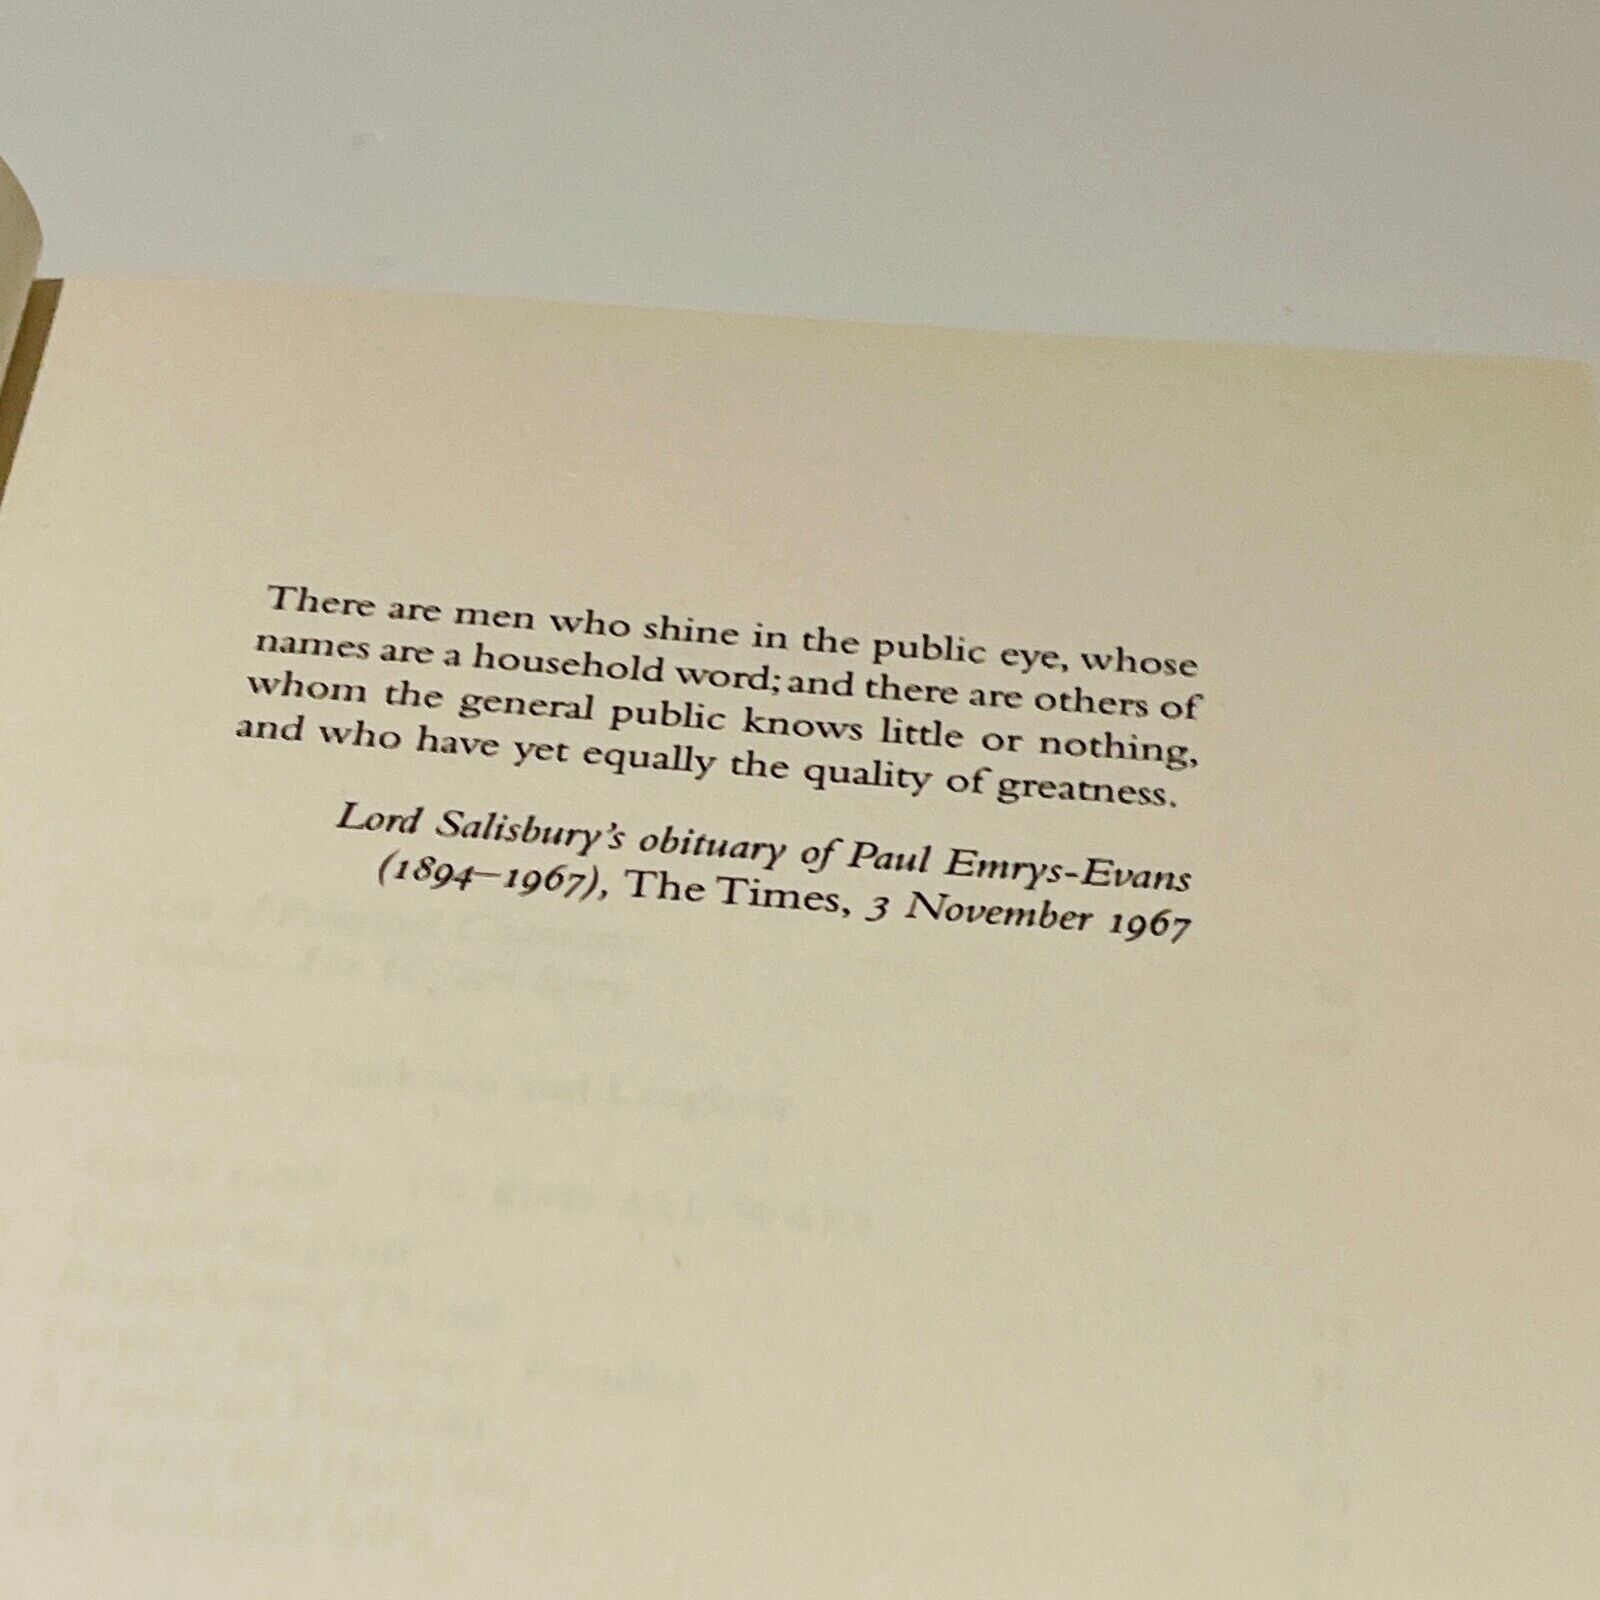 There are men who shine in the public eye, whose
names are a household word; and there are others of
whom the general public knows little or nothing,
and who have yet equally the quality of greatness.
Lord Salisbury's obituary of Paul Emrys-Evans
(1894–1967), The Times, 3 November 1967